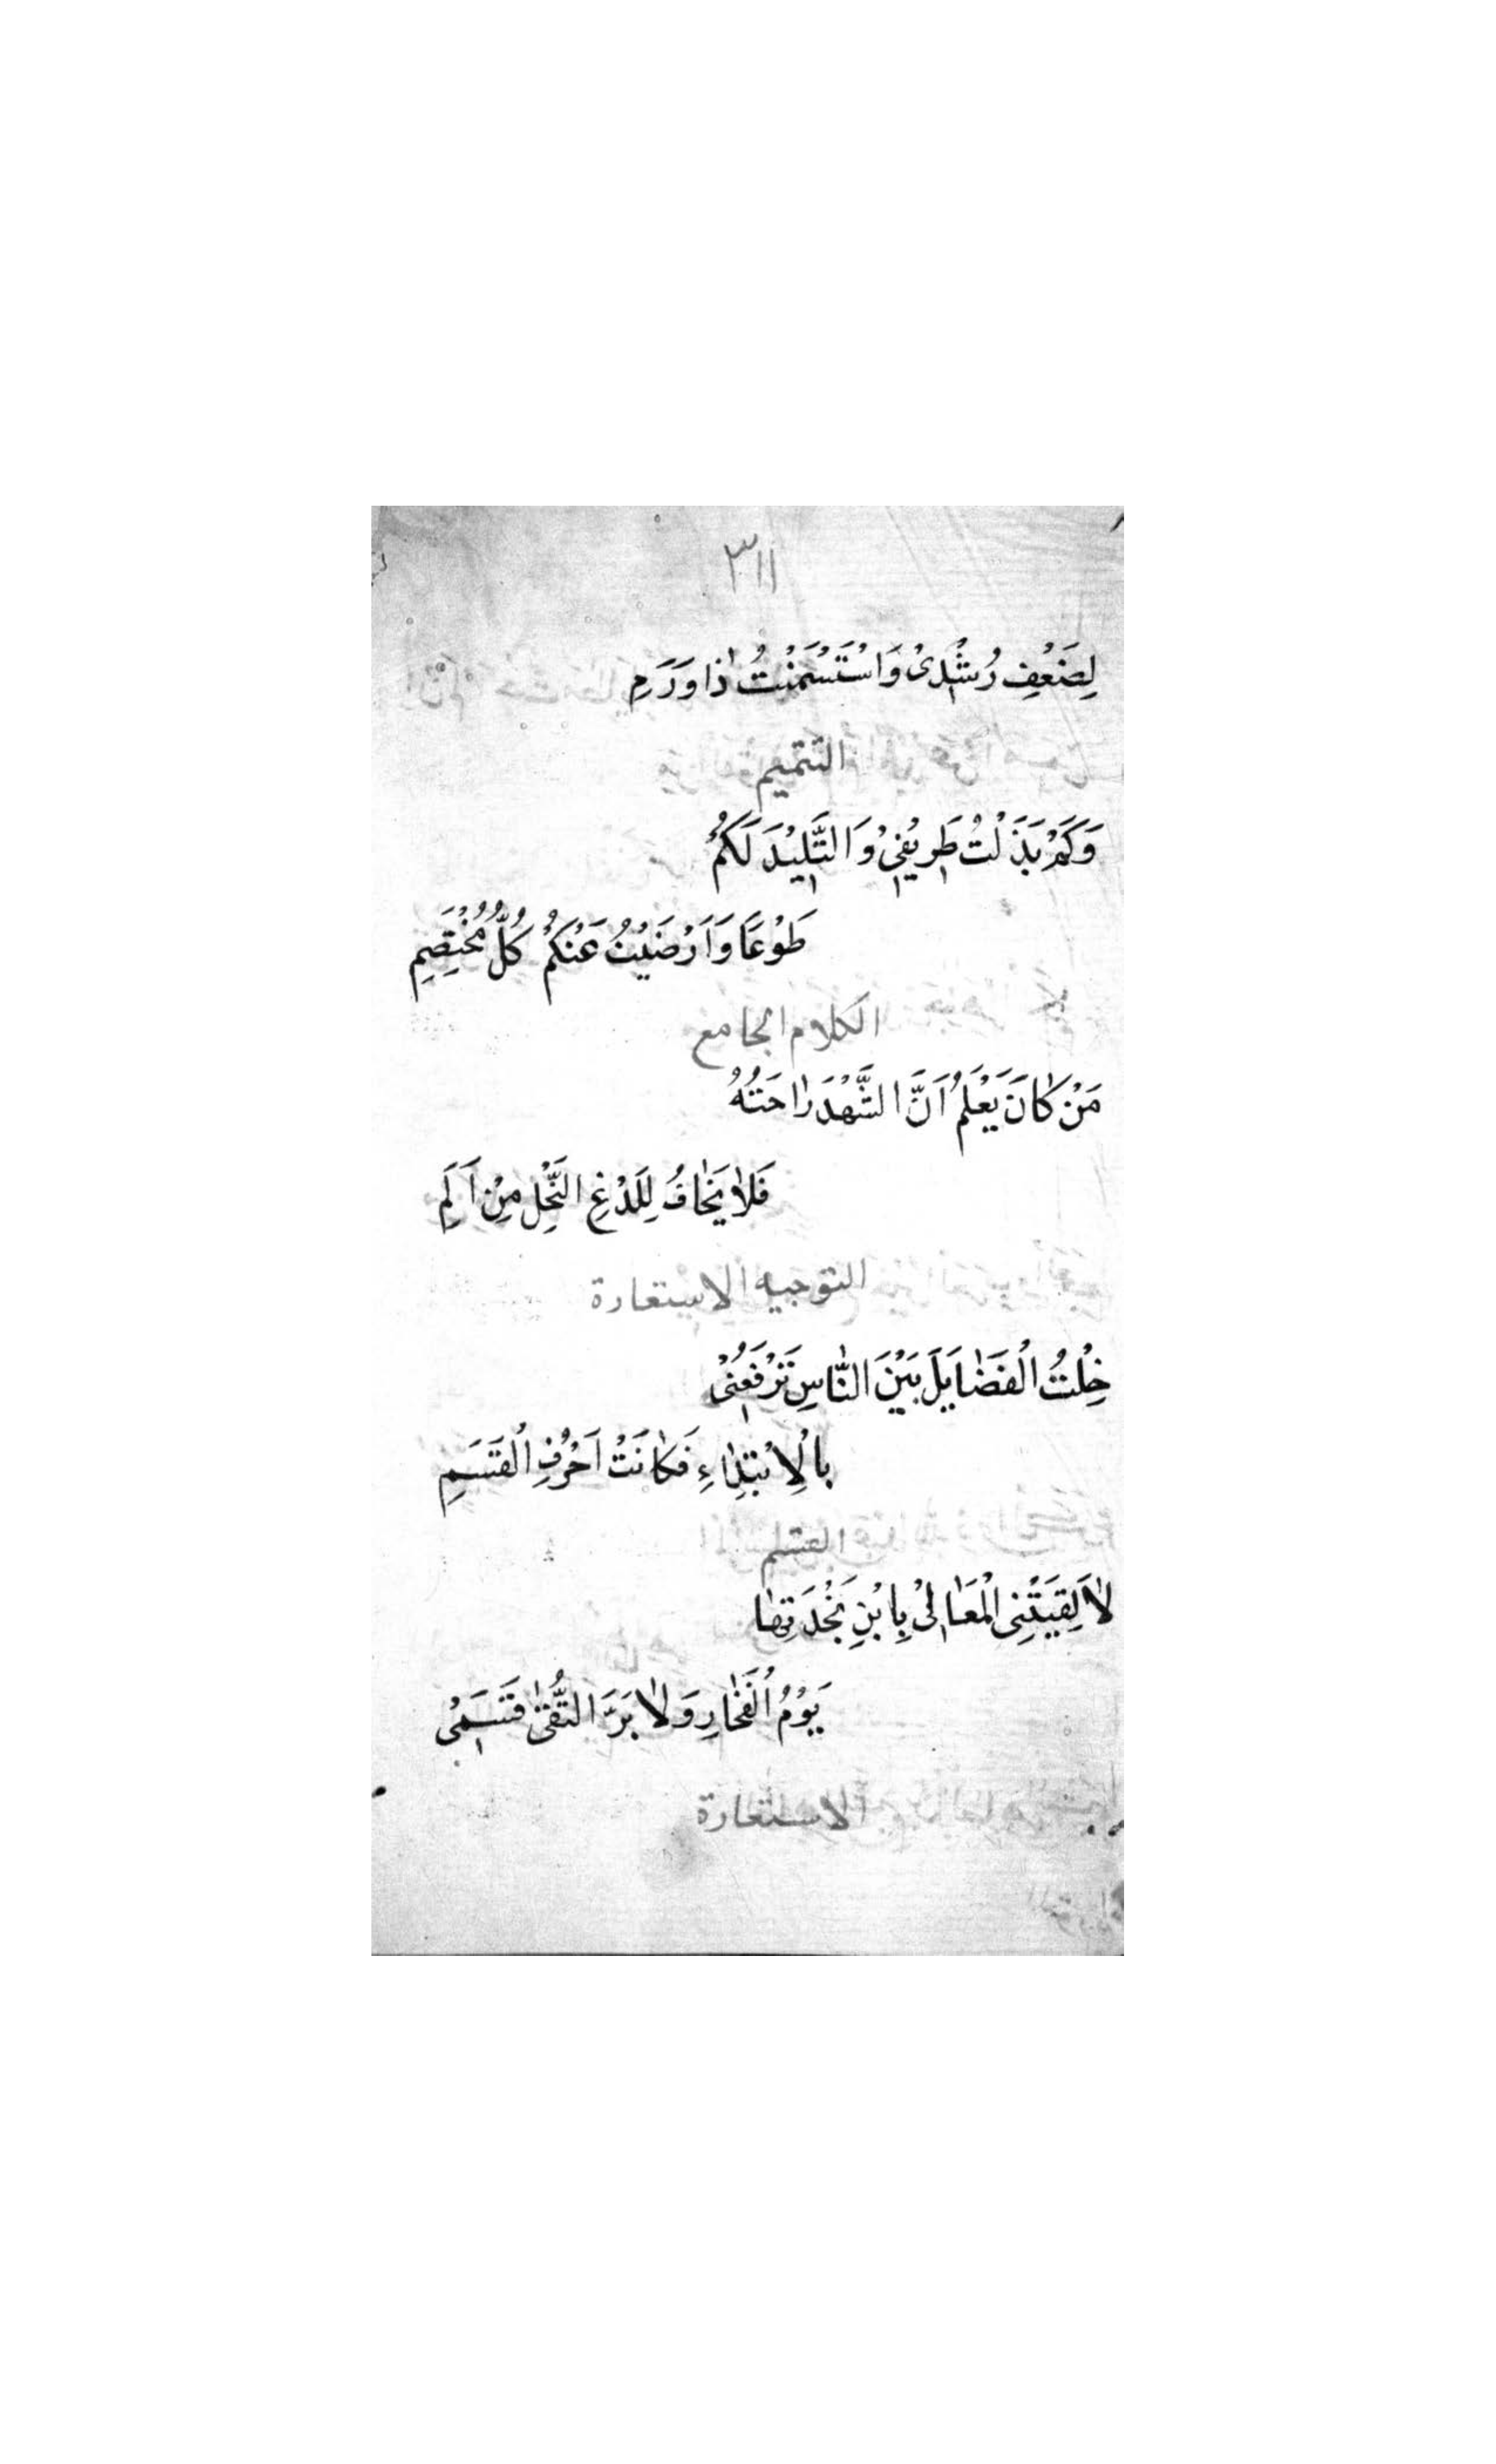 ٣١١
لِضَعْفِ رُشْدِىْ وَاسْتَسْمَنْتُ ذَا وَرَمِ
التتميم
وَكَمْ بَذَلْتُ طَرِيْفِىْ وَالتَّلِيْدَ لَكُمُ
طَوْعًا وَاَرْضَيْتُ عَنْكُمْ كُلَّ مُخْتَصِمِ
الكلام الجامع
مَنْ كَانَ يَعْلَمُ اَنَّ الشَّهْدَ رَاحَتُهُ
فَلَا يَخَافُ لِلَدْغِ النَّحْلِ مِنْ اَلَمِ
التوجيه الاستعارة
خِلْتُ الْفَضَايِلَ بَيْنَ النَّاسِ تَرْفَعُنِىْ
بِالْاِبْتِدَاءِ فَكَانَتْ اَحْرُفِ الْقَسَمِ
القسم
لَا لَقِيَتْنِى الْمَعَالِىْ بِابْنِ نَجْدَتِهَا
يَوْمُ الْفَخَارِ وَلَا بَرَّ التُّقَىٰ قَسَمِىْ
الاستعارة